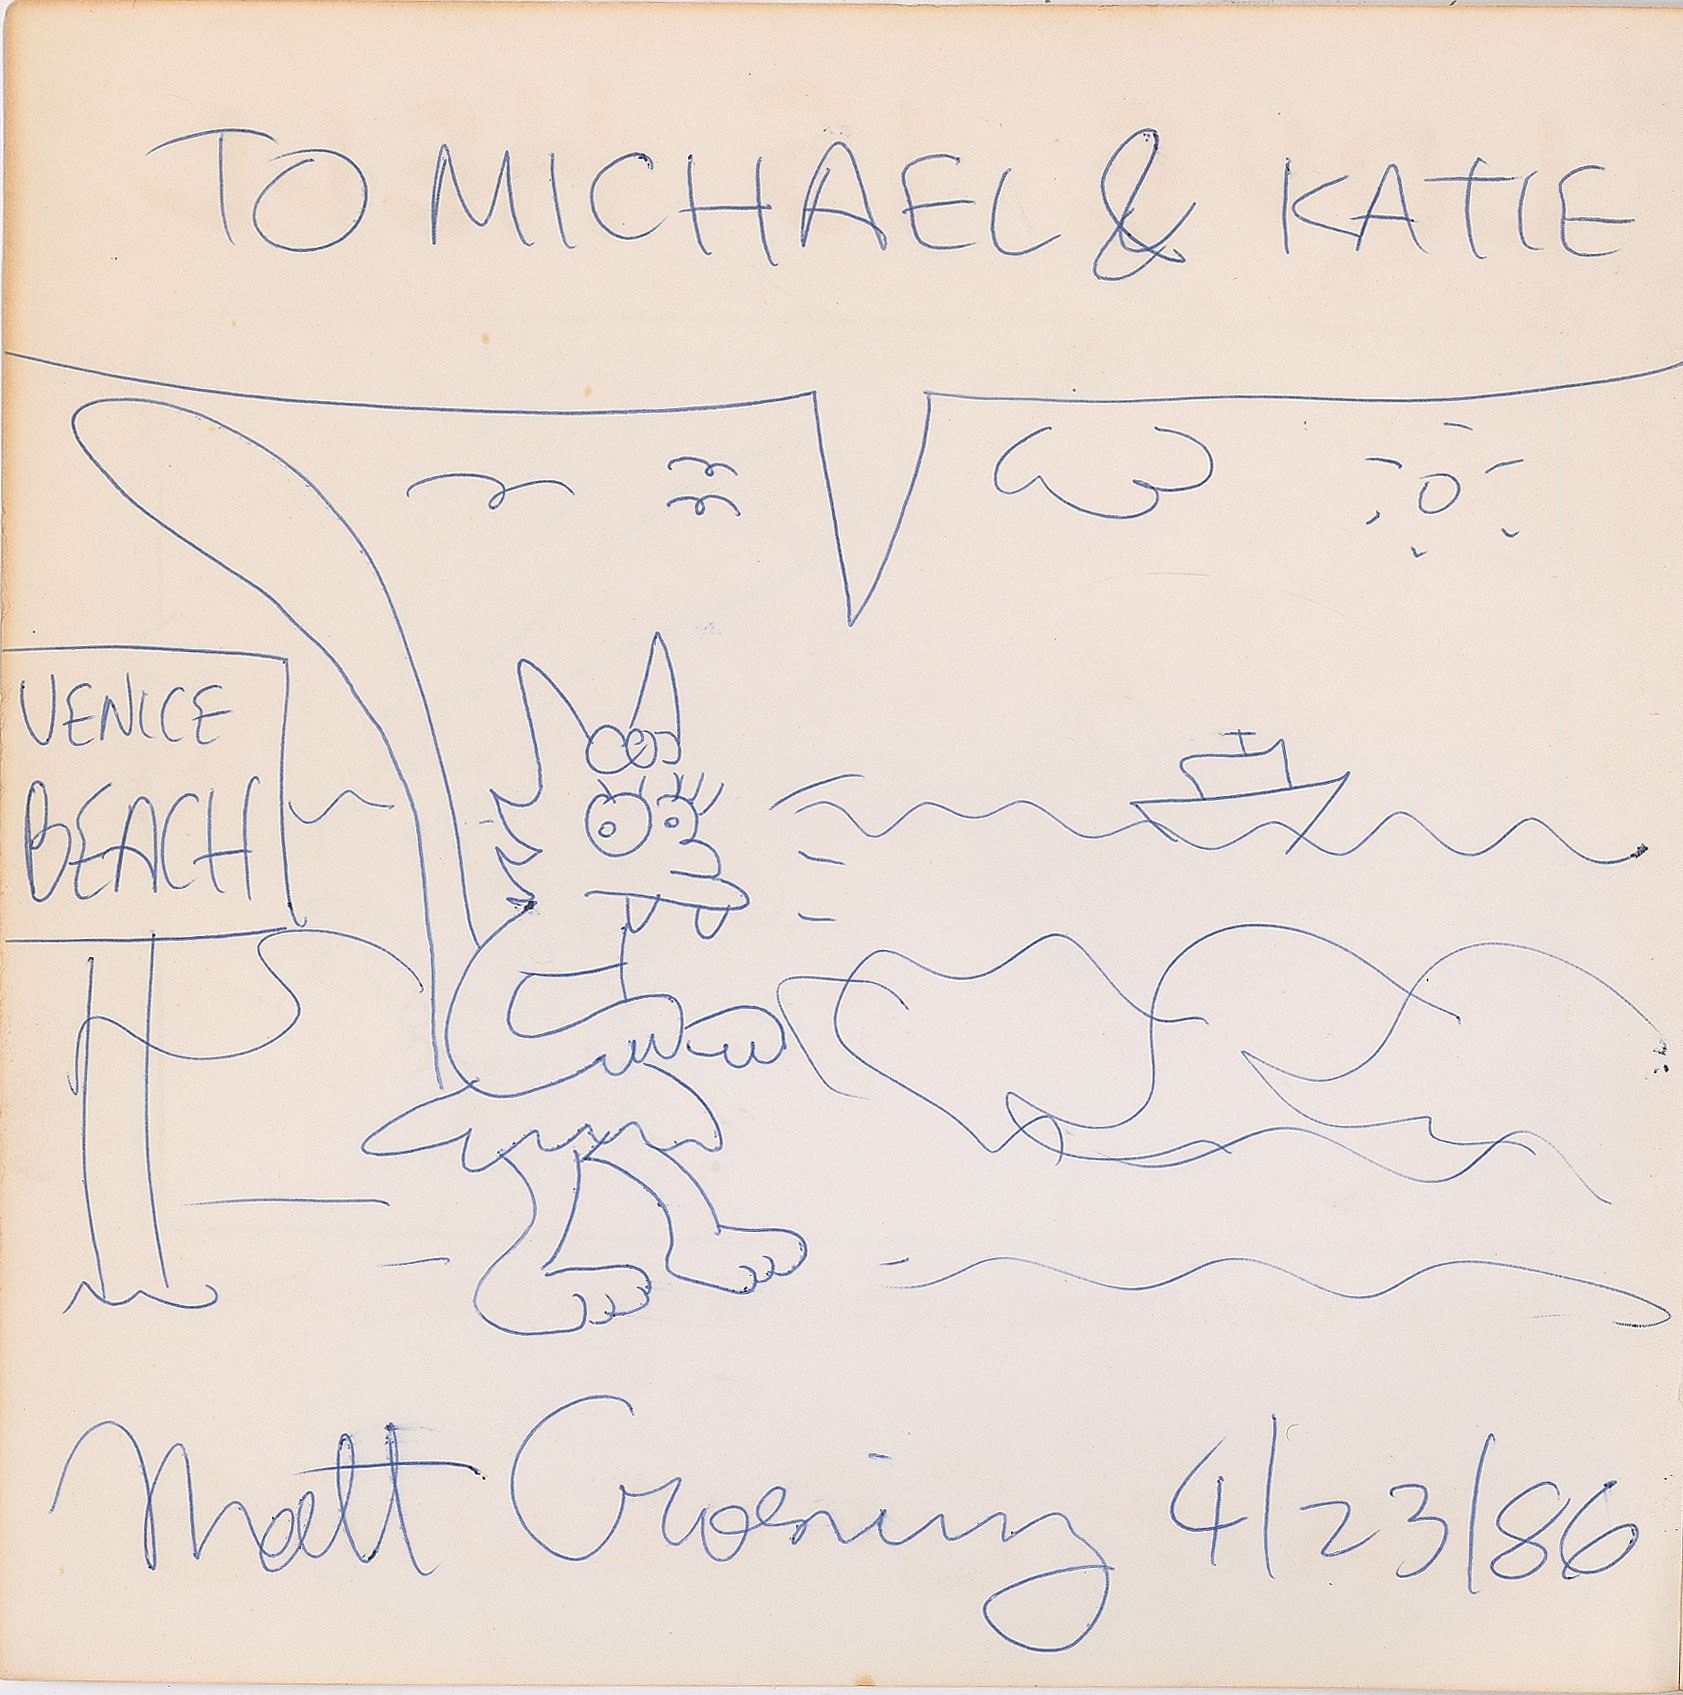 TO MICHAEL & KATIE
VENICE
BEACH
Matt Groening 4/23/86